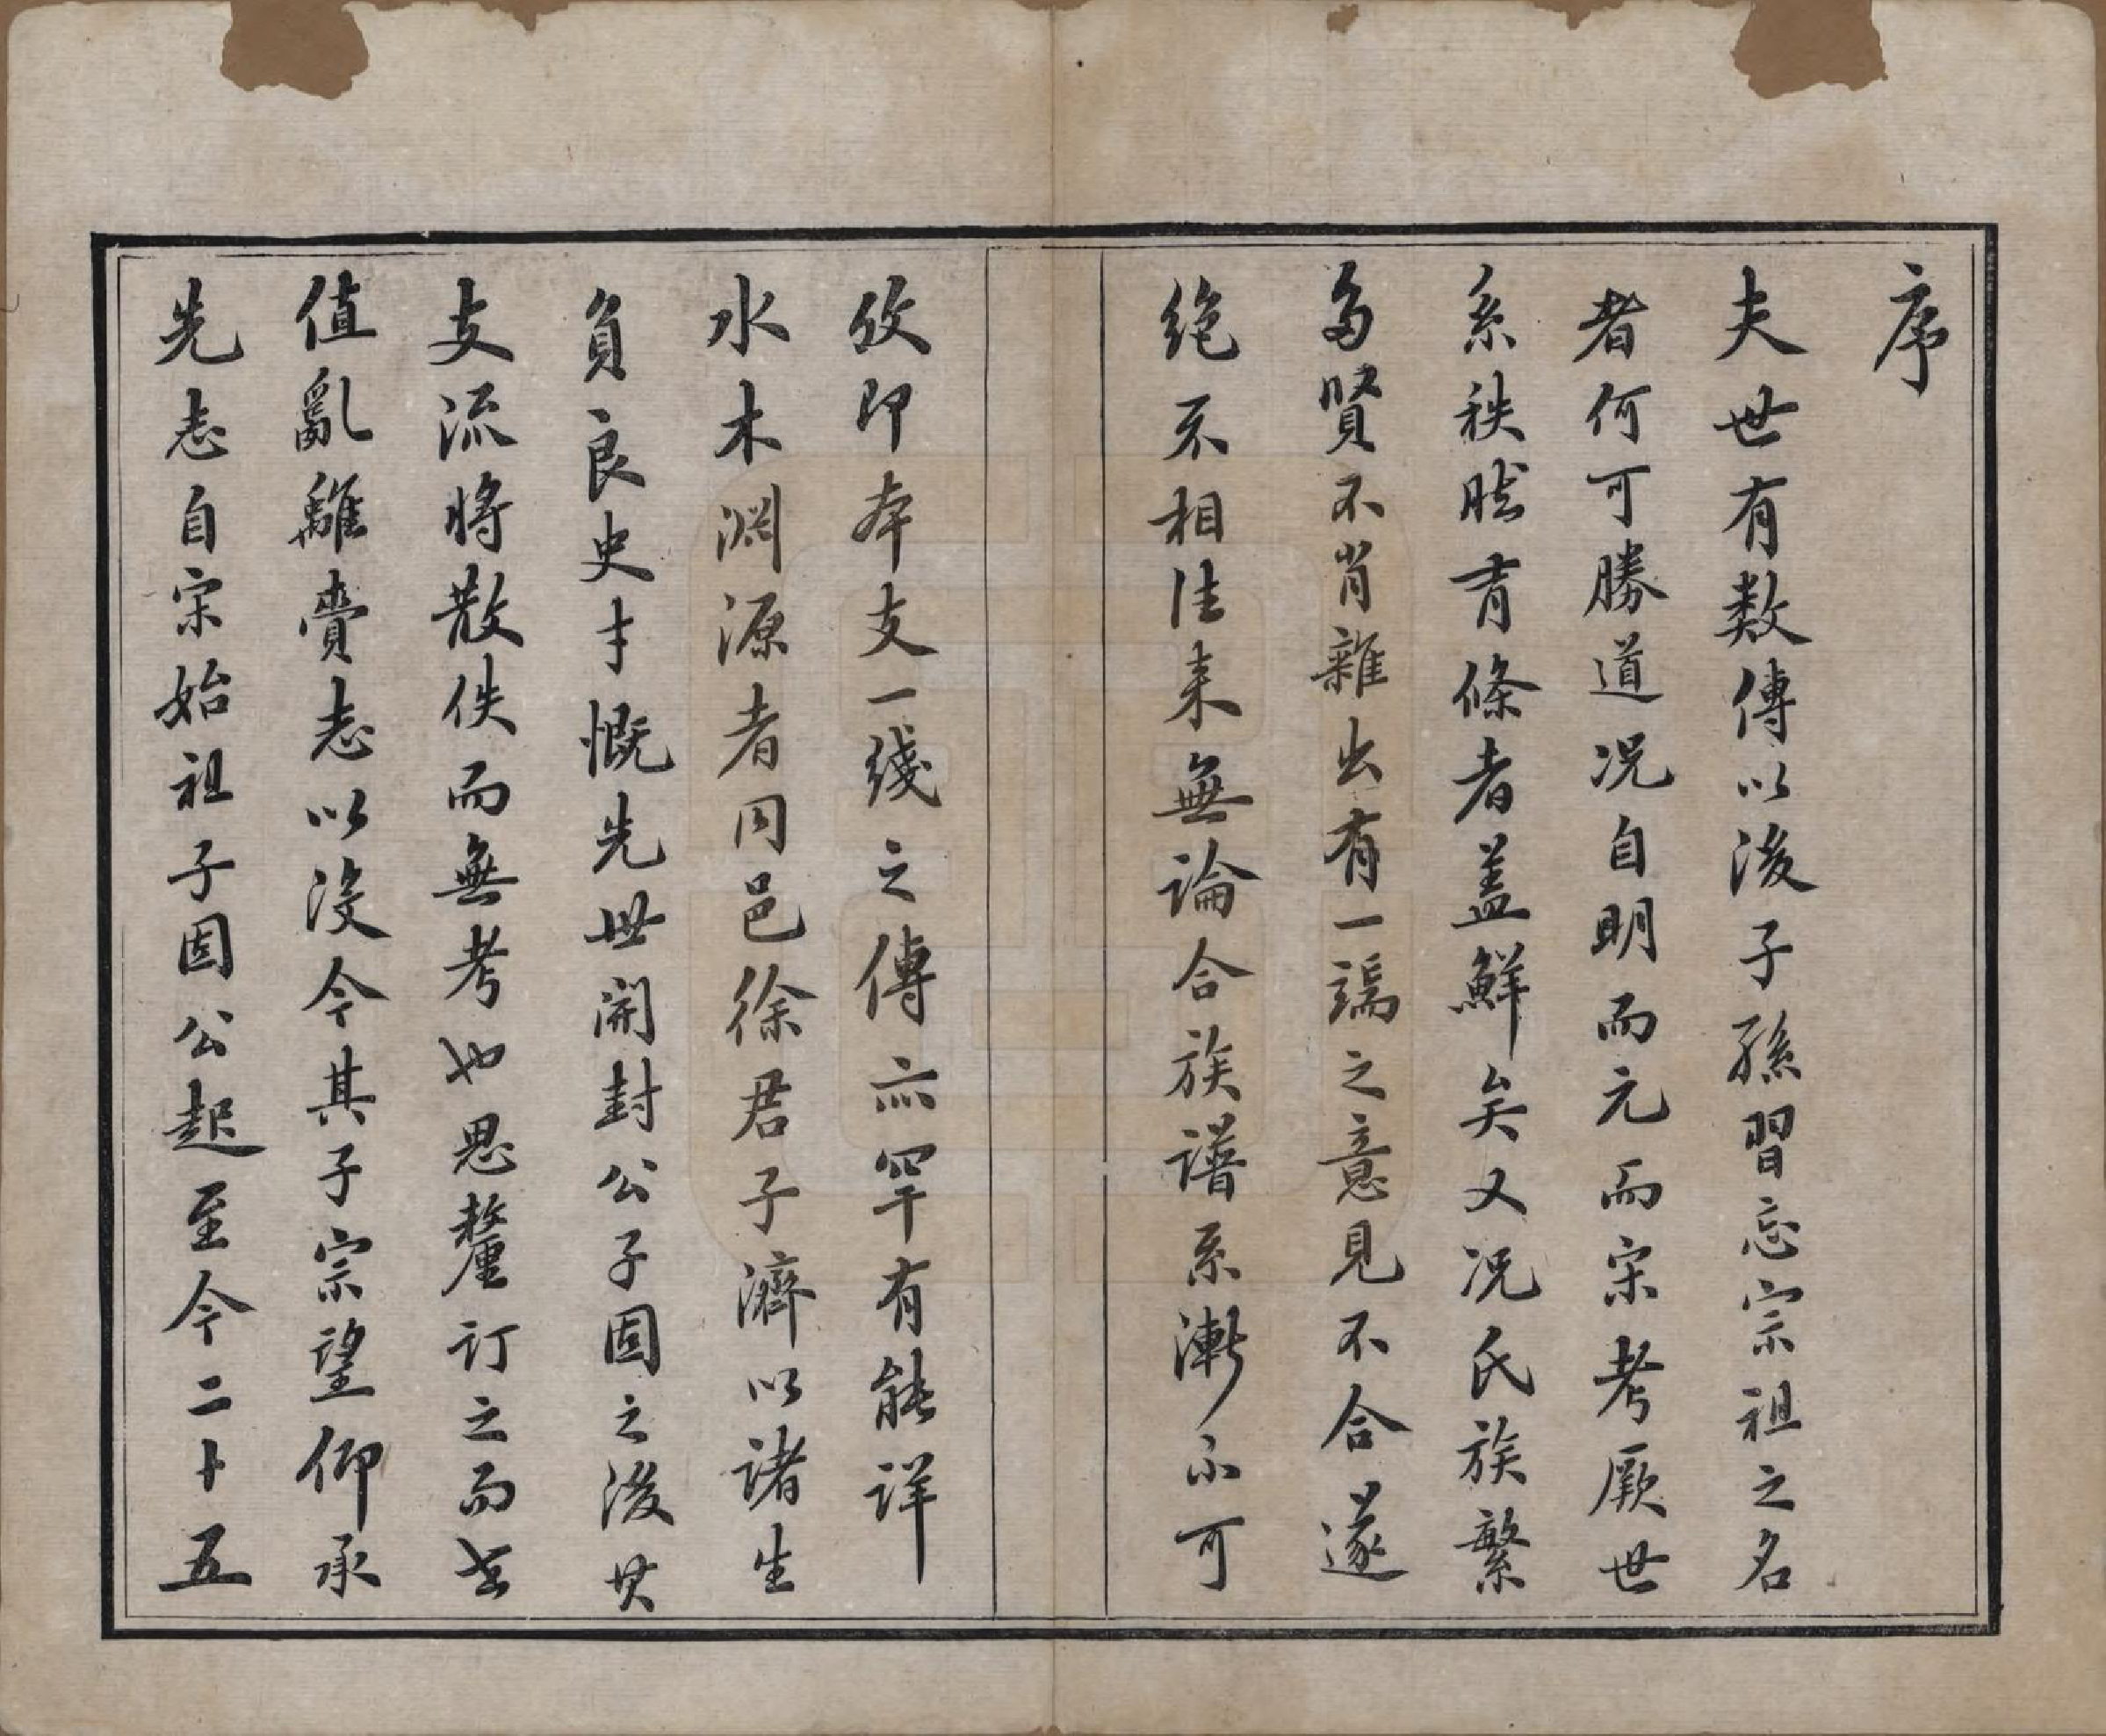 序
夫世有数傳以後子孫習忘宗祖之名
者何可勝道况自明而元而宋考厥世
系秩然有條者盖鮮矣又况氏族繁
多賢不肖雜出有一端之意見不合遂
絶不相往来無論合族譜系漸不可
攷即本支一綫之傳亦罕有能詳
水木淵源者同邑徐君子濟以諸生
負良史才慨先世開封公子固之後其
支流將散佚而無考也思釐訂之而世
值亂離賫志以沒今其子宗望仰承
先志自宋始祖子固公起至今二十五